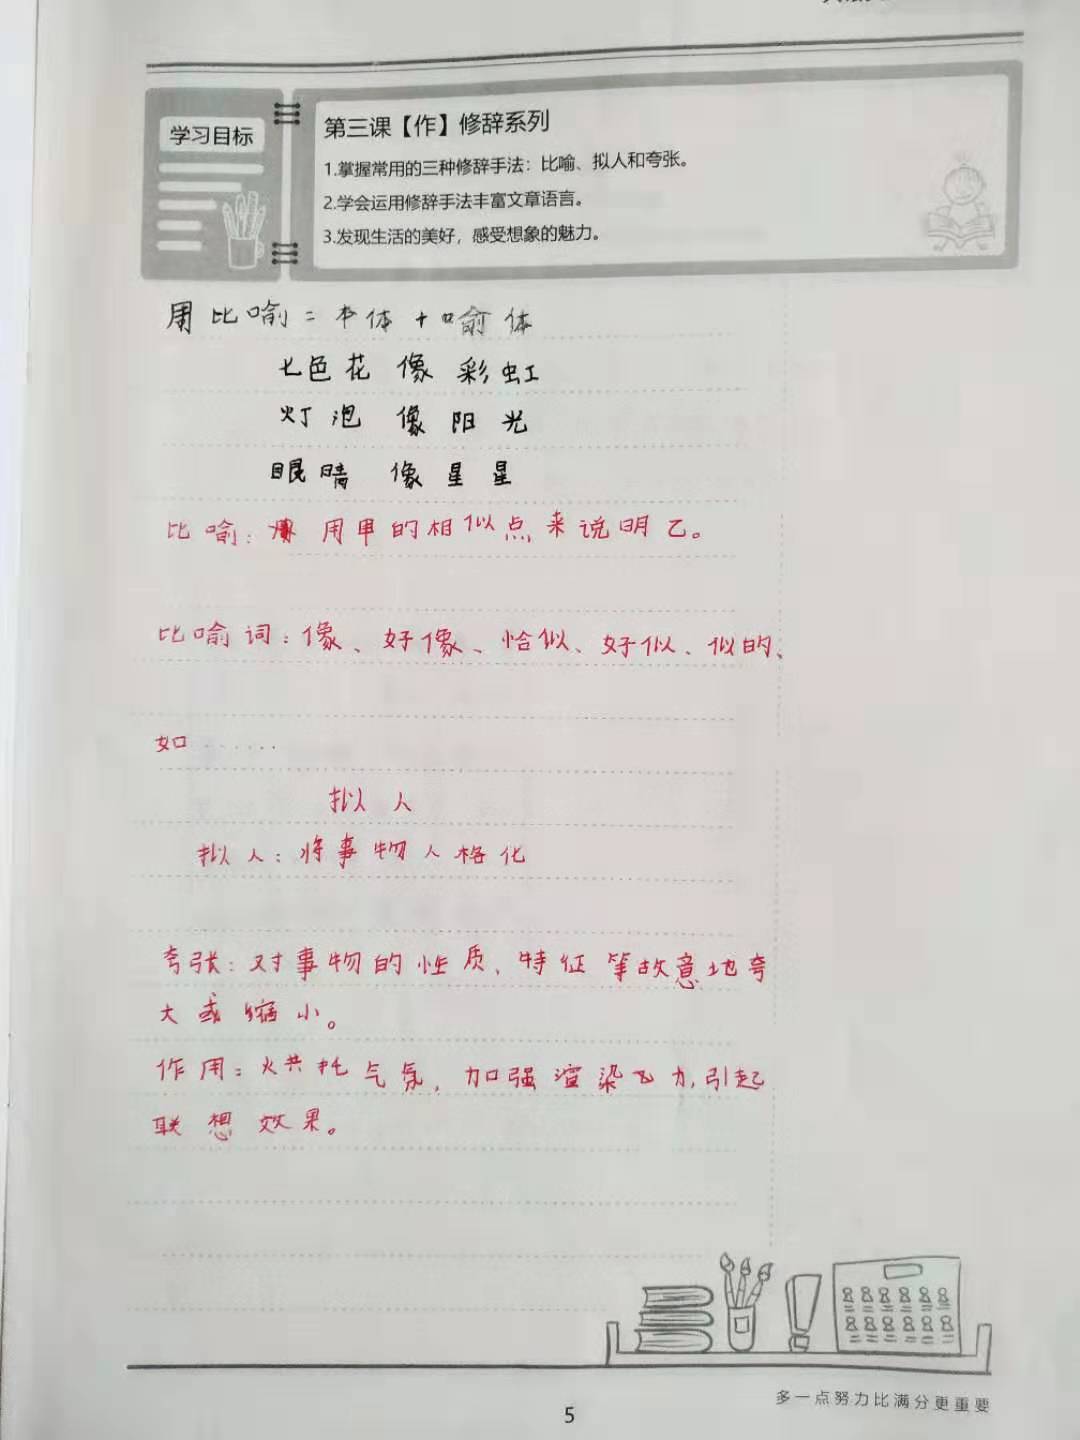 学习目标
第三课【作】修辞系列
1.掌握常用的三种修辞手法：比喻、拟人和夸张。
2.学会运用修辞手法丰富文章语言。
3.发现生活的美好，感受想象的魅力。
用比喻=本体+喻体
七色花 像 彩虹
灯泡 像 阳光
眼睛 像 星星
比喻：用甲的相似点来说明乙。
比喻词：像、好像、恰似、好似、似的、
如……
拟人
拟人：将事物人格化
夸张：对事物的性质、特征等故意地夸
大或缩小。
作用：烘托气氛，加强渲染力，引起
联想效果。
多一点努力比满分更重要
5